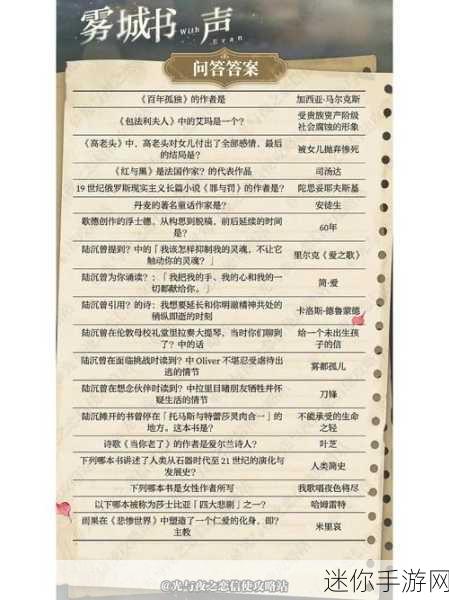 雾城书声
With Evan
问答答案
《百年孤独》的作者是 加西亚·马尔克斯
《包法利夫人》中的艾玛是一个? 受贵族资产阶级
社会腐蚀的形象
《高老头》中，高老头对女儿付出了全部感情，最后
的结局是? 被女儿抛弃惨死
《红与黑》是法国作家? 的代表作品 司汤达
19世纪俄罗斯现实主义长篇小说《罪与罚》的作者是? 陀思妥耶夫斯基
丹麦的著名童话作家是? 安徒生
歌德创作的浮士德，从构思到脱稿，前后延续的时间
是? 60年
陆沉曾提到? 中的「我该怎样抑制我的灵魂，不让它
触动你的灵魂?」 里尔克《爱之歌》
陆沉曾为你诵读? :「我把我的手、我的心和我的一
切都献给你。」 简·爱
陆沉曾引用? 的诗: 我想要延长和你明澈精神共处的
稍纵即逝的时刻 卡洛斯·德鲁蒙德
陆沉曾在伦敦母校礼堂里拉奏大提琴，当时你们聊到
了? 中的话 给一个未出生孩
子的信
陆沉曾在面临挑战时读到? 中 Oliver 不堪忍受虐待出
逃的情节 雾都孤儿
陆沉曾在想念伙伴时读到? 中拉里目睹朋友牺牲并怀
疑生活的情节 刀锋
陆沉摊开的书曾停在「托马斯与特蕾莎灵肉合一」的
地方。这本书是? 不能承受的生命
之轻
诗歌《当你老了》的作者是爱尔兰诗人? 叶芝
下列哪本书讲述了人类从石器时代至21世纪的演化与
发展史? 人类简史
下列哪本书是女性作者所写 我歌唱夜色将尽
以下哪本被称为莎士比亚「四大悲剧」之一? 哈姆雷特
雨果在《悲惨世界》中塑造了一个仁爱的化身，即?
主教 米里哀
@光与夜之恋信徒攻略站
迷你手游网